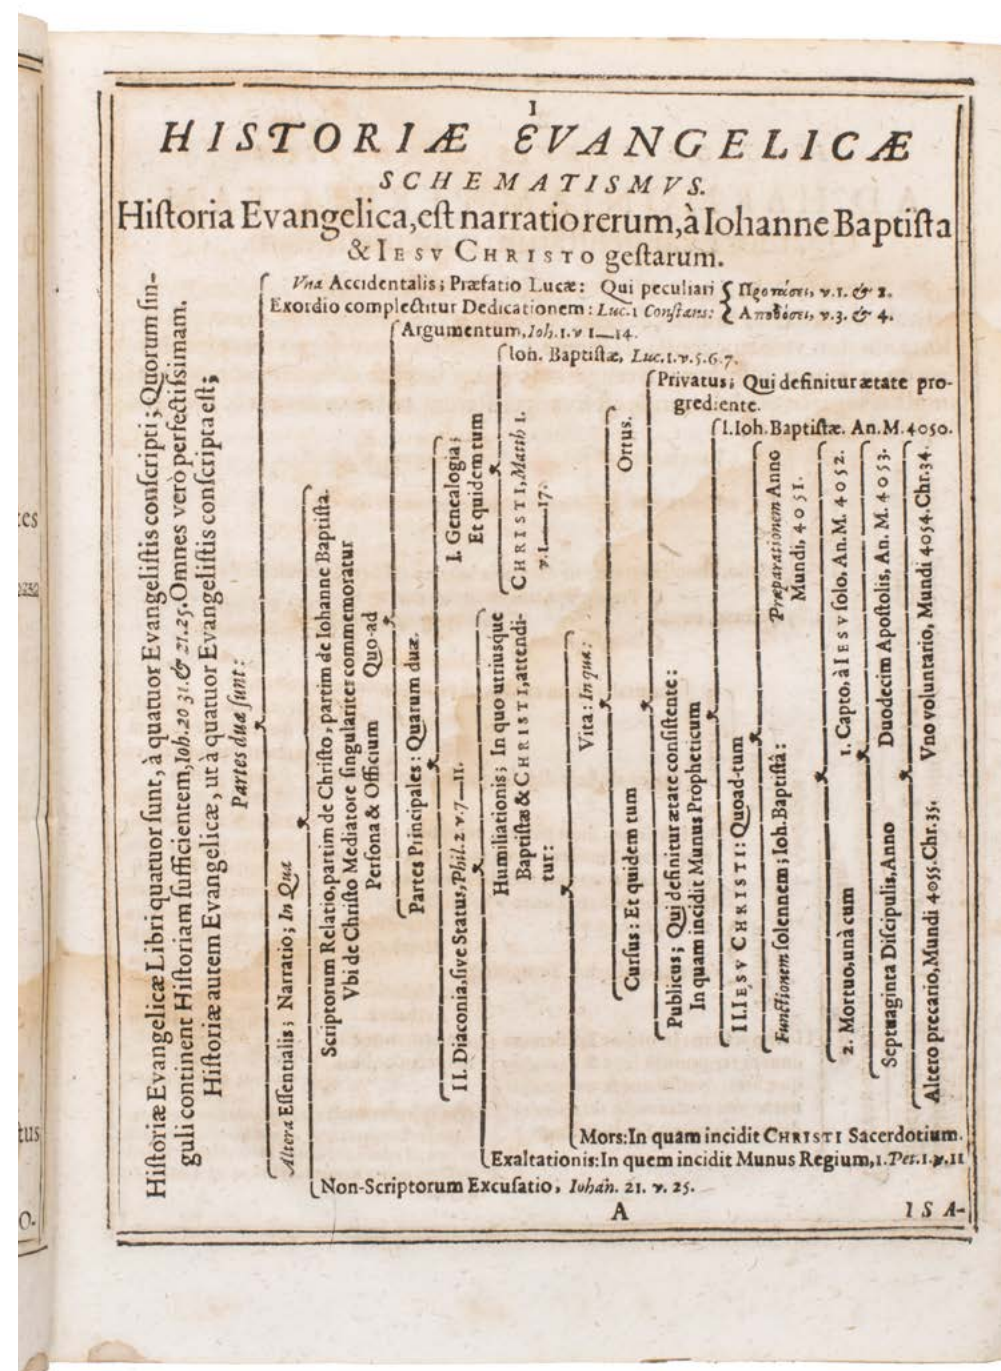 I
HISTORIÆ EVANGELICÆ
SCHEMATISMVS.
Hiſtoria Evangelica, eſt narratio rerum, à Iohanne Baptiſta
& IESV CHRISTO geſtarum.
Hiſtoriæ Evangelicæ Libri quatuor ſunt, à quatuor Evangeliſtis conſcripti; Quorum ſin-
guli continent Hiſtoriam ſufficientem, Ioh. 20 31. & 21. 25. Omnes verò perfectiſsimam.
Hiſtoriæ autem Evangelicæ, ut à quatuor Evangeliſtis conſcripta eſt;
Partes duæ ſunt:
Vna Accidentalis; Præfatio Lucæ: Qui peculiari
Exordio complectitur Dedicationem: Luc. 1 Conſtans:
Προτάσει, v. 1. & 2.
Αποδόσει, v. 3. & 4.
Altera Eſſentialis; Narratio; In Qua
Scriptorum Relatio, partim de Chriſto, partim de Iohanne Baptiſta.
Vbi de Chriſto Mediatore ſingulariter commemoratur
Perſona & Officium Quo-ad
Argumentum, Ioh. 1. v 1—14.
Partes Principales: Quarum duæ.
I. Genealogia;
Et quidem tum
Ioh. Baptiſtæ, Luc. 1. v. 5. 6. 7.
CHRISTI, Matth 1.
v. 1—17.
II. Diaconia, ſive Status, Phil. 2. v. 7—11.
Humiliationis; In quo utriusque
Baptiſtæ & CHRISTI, attendi-
tur:
Vita: In qua:
Ortus.
Curſus: Et quidem tum
Privatus; Qui definitur ætate pro-
grediente.
Publicus; Qui definitur ætate conſiſtente:
In quam incidit Munus Propheticum
I. Ioh. Baptiſtæ. An. M. 4050.
II. IESV CHRISTI: Quoad-tum
Præparationem Anno
Mundi, 4051.
Functionem ſolennem; Ioh. Baptiſtâ:
1. Capto, à IESV ſolo, An. M. 4052.
2. Mortuo, unà cum
Duodecim Apoſtolis, An. M. 4053.
Septuaginta Diſcipulis, Anno
Vno voluntario, Mundi 4054. Chr. 34.
Altero precario, Mundi 4055. Chr. 35.
Mors: In quam incidit CHRISTI Sacerdotium.
Exaltationis: In quem incidit Munus Regium, 1. Pet. 1. v. 11
Non-Scriptorum Excuſatio, Iohan. 21. v. 25.
A
ISA-
tus